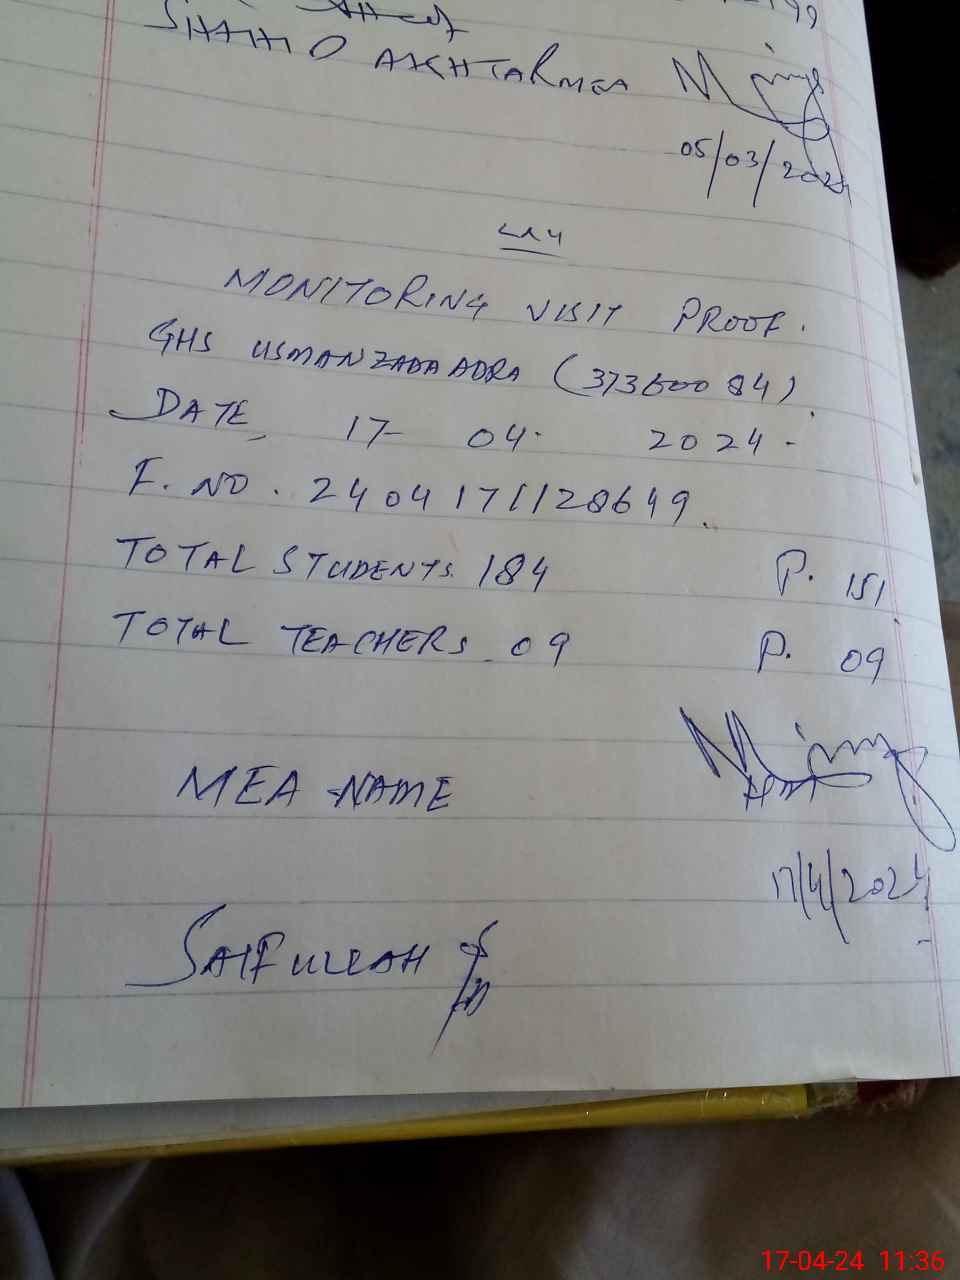 SHAHID AKHTAR MEA
05/03/2024
MONITORING VISIT PROOF.
GHS USMANZADA ADRA (37360084)
DATE, 17- 04. 2024-
F. NO. 2404171128649.
TOTAL STUDENTS. 184 P. 151
TOTAL TEACHERS. 09 P. 09
MEA NAME
HM
17/4/2024
SAIFULLAH
17-04-24 11:36